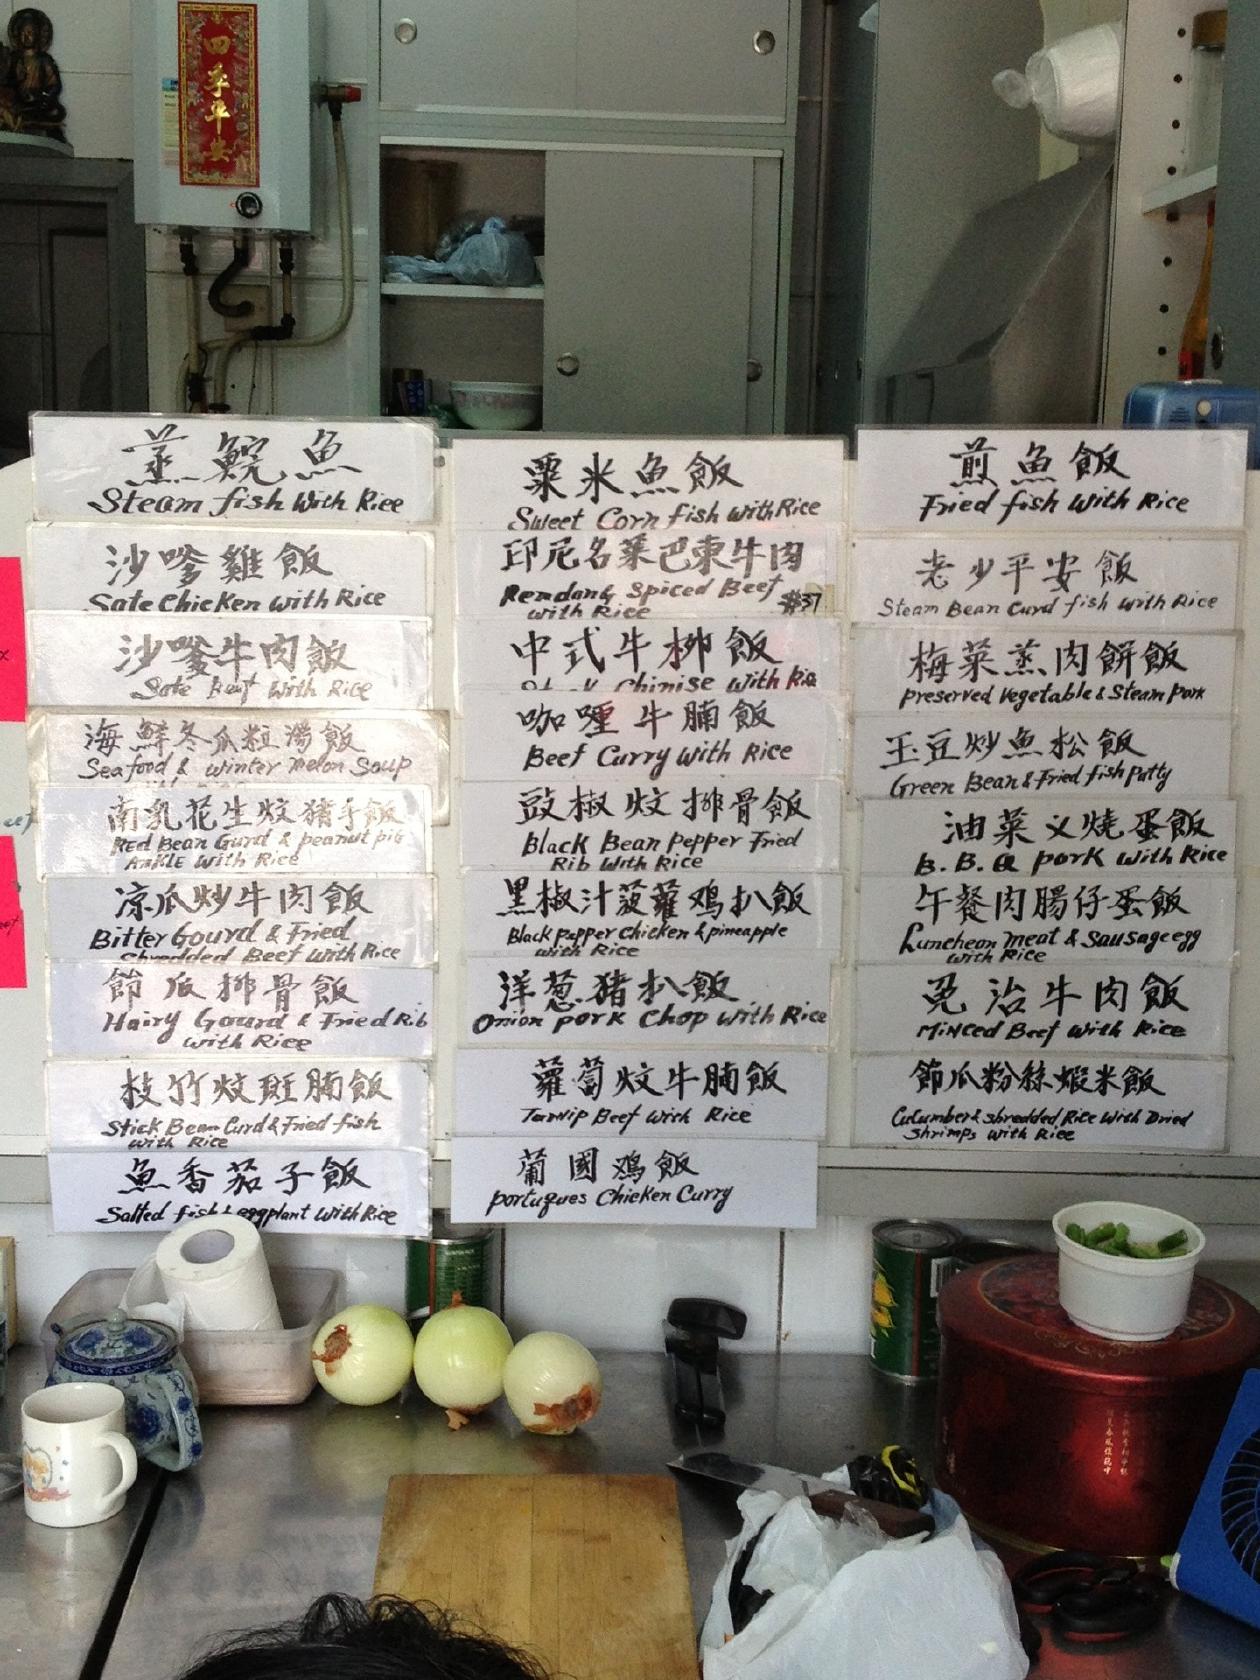 四季平安
蒸鯇魚
Steam fish With Rice
沙嗲雞飯
Sate Chicken With Rice
沙嗲牛肉飯
Sate Beef With Rice
海鮮冬瓜粒湯飯
Seafood & Winter Melon Soup
南乳花生炆猪手飯
RED Bean Gurd & peanut pig
Ankle With Rice
凉瓜炒牛肉飯
Bitter Gourd & Fried
Shredded Beef With Rice
節瓜排骨飯
Hairy Gourd & Fried Rib
With Rice
枝竹炆斑腩飯
Stick Bean Curd & Fried fish
With Rice
魚香茄子飯
Salted fish & eggplant With Rice
粟米魚飯
Sweet Corn fish with Rice
印尼名菜巴東牛肉
Remdang Spiced Beef
with Rice
$37
中式牛柳飯
Steak Chinise With Rice
咖喱牛腩飯
Beef Curry With Rice
豉椒炆排骨飯
Black Bean Pepper Fried
Rib With Rice
黑椒汁菠蘿鸡扒飯
Black Pepper Chicken & pineapple
with Rice
洋葱猪扒飯
Onion pork Chop With Rice
蘿蔔炆牛腩飯
Turnip Beef With Rice
葡國鸡飯
portugues Chicken Curry
煎魚飯
Fried fish With Rice
老少平安飯
Steam Bean Curd fish With Rice
梅菜蒸肉餅飯
preserved Vegetable & Steam pork
玉豆炒魚松飯
Green Bean & Fried fish patty
油菜义燒蛋飯
B.B.Q pork With Rice
午餐肉腸仔蛋飯
Luncheon meat & Sausage egg
With Rice
免治牛肉飯
MiNCed Beef With Rice
節瓜粉絲蝦米飯
Cucumber & shredded Rice With Dried
Shrimps With Rice